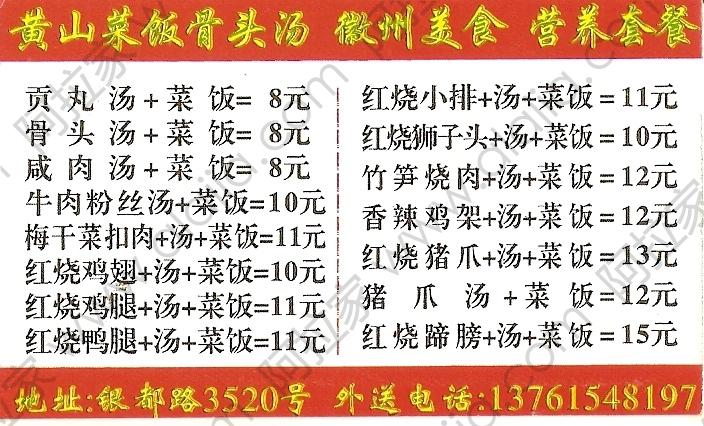 黄山菜饭骨头汤 徽州美食 营养套餐
贡丸汤+菜饭=8元
骨头汤+菜饭=8元
咸肉汤+菜饭=8元
牛肉粉丝汤+菜饭=10元
梅干菜扣肉+汤+菜饭=11元
红烧鸡翅+汤+菜饭=10元
红烧鸡腿+汤+菜饭=11元
红烧鸭腿+汤+菜饭=11元
红烧小排+汤+菜饭=11元
红烧狮子头+汤+菜饭=10元
竹笋烧肉+汤+菜饭=12元
香辣鸡架+汤+菜饭=12元
红烧猪爪+汤+菜饭=13元
猪爪汤+菜饭=12元
红烧蹄膀+汤+菜饭=15元
地址:银都路3520号 外送电话:13761548197